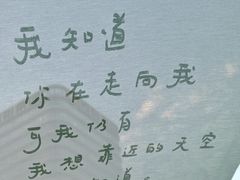 我知道
你在走向我
可我仍有
我想靠近的天空